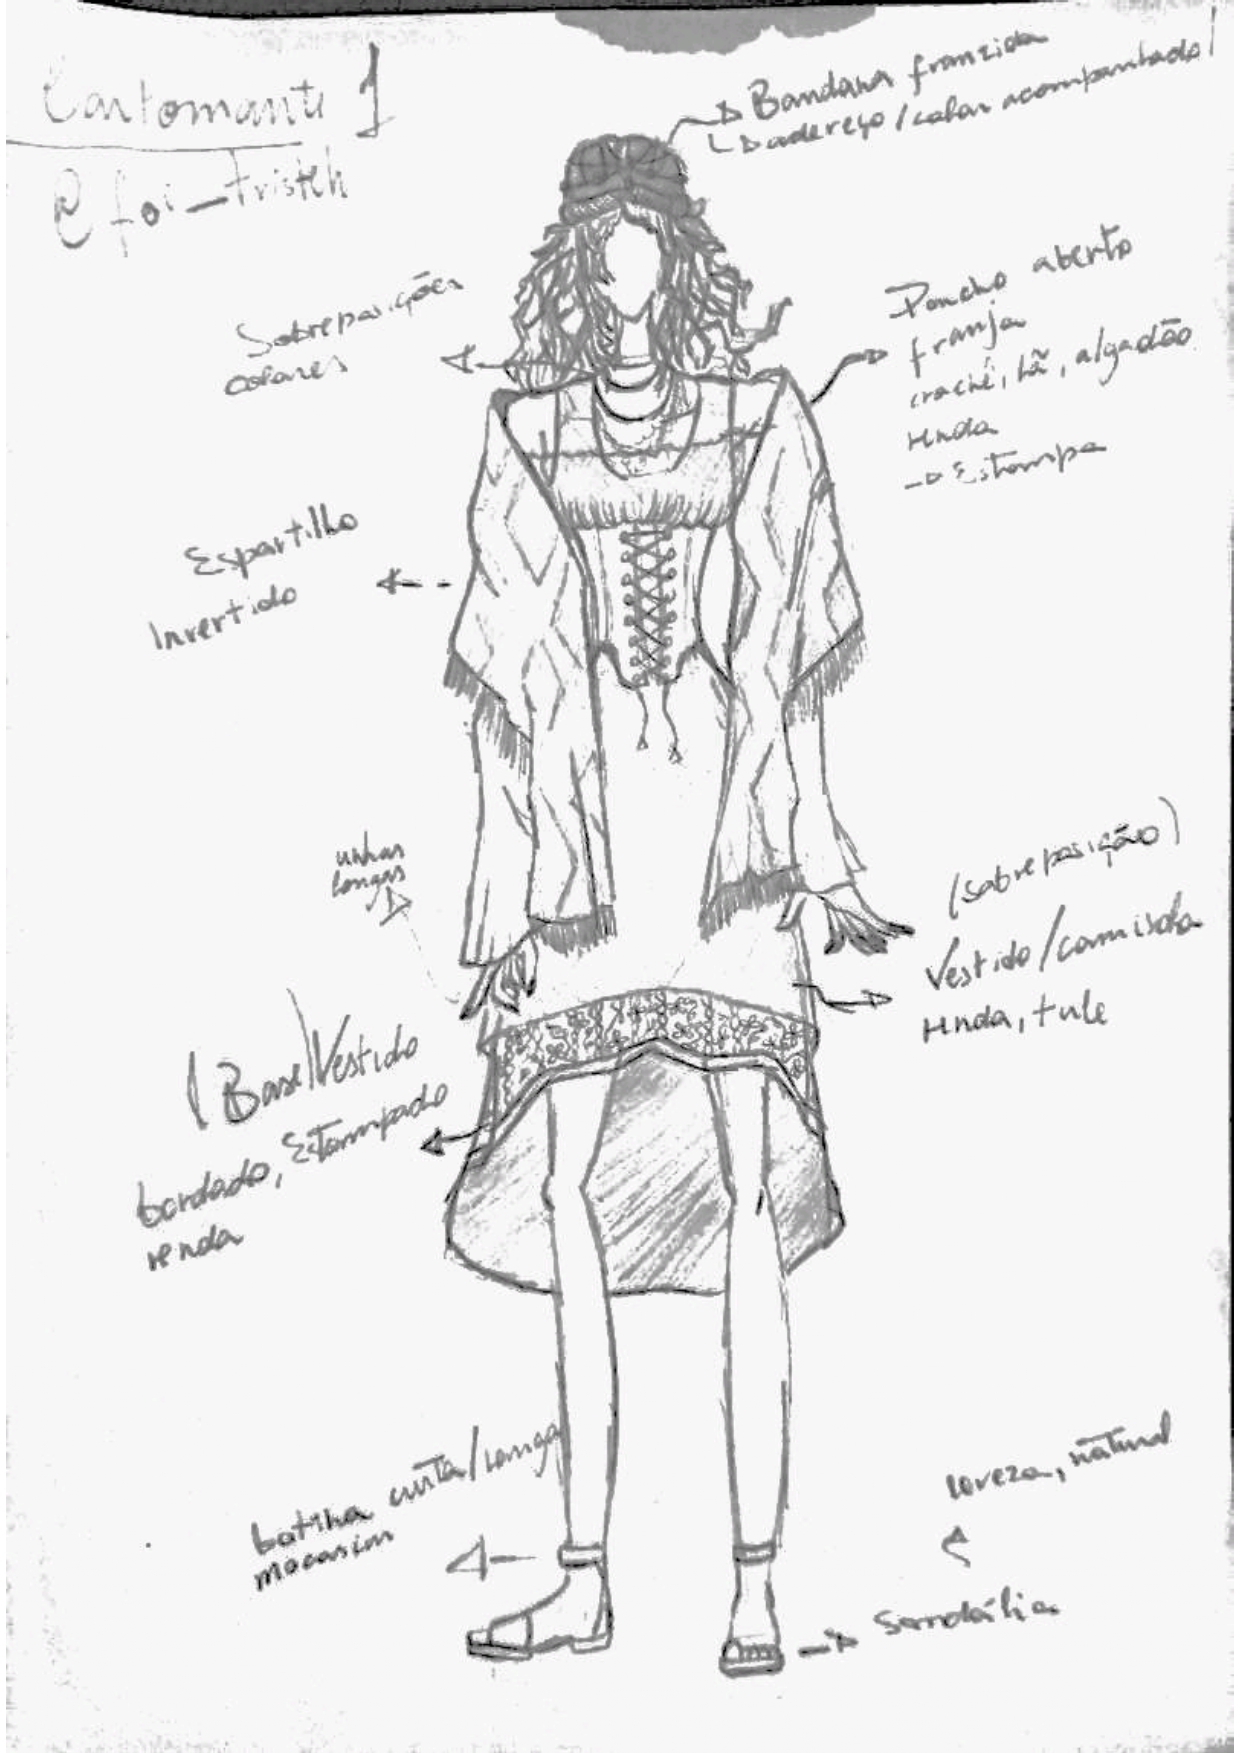 Cartomante 1
@foi_Tristeh
Bandana franzida
adereço/colar acompanhado
Sobreposições
colares
Poncho aberto
franja
crochê, lã, algodão
renda
Estampa
Espartilho
Invertido
unhas
longas
(sobreposição)
Vestido/camisola
renda, tule
(Base) Vestido
bordado, Estampado
renda
botinha curta/longa
mocasim
leveza, natural
Sandália